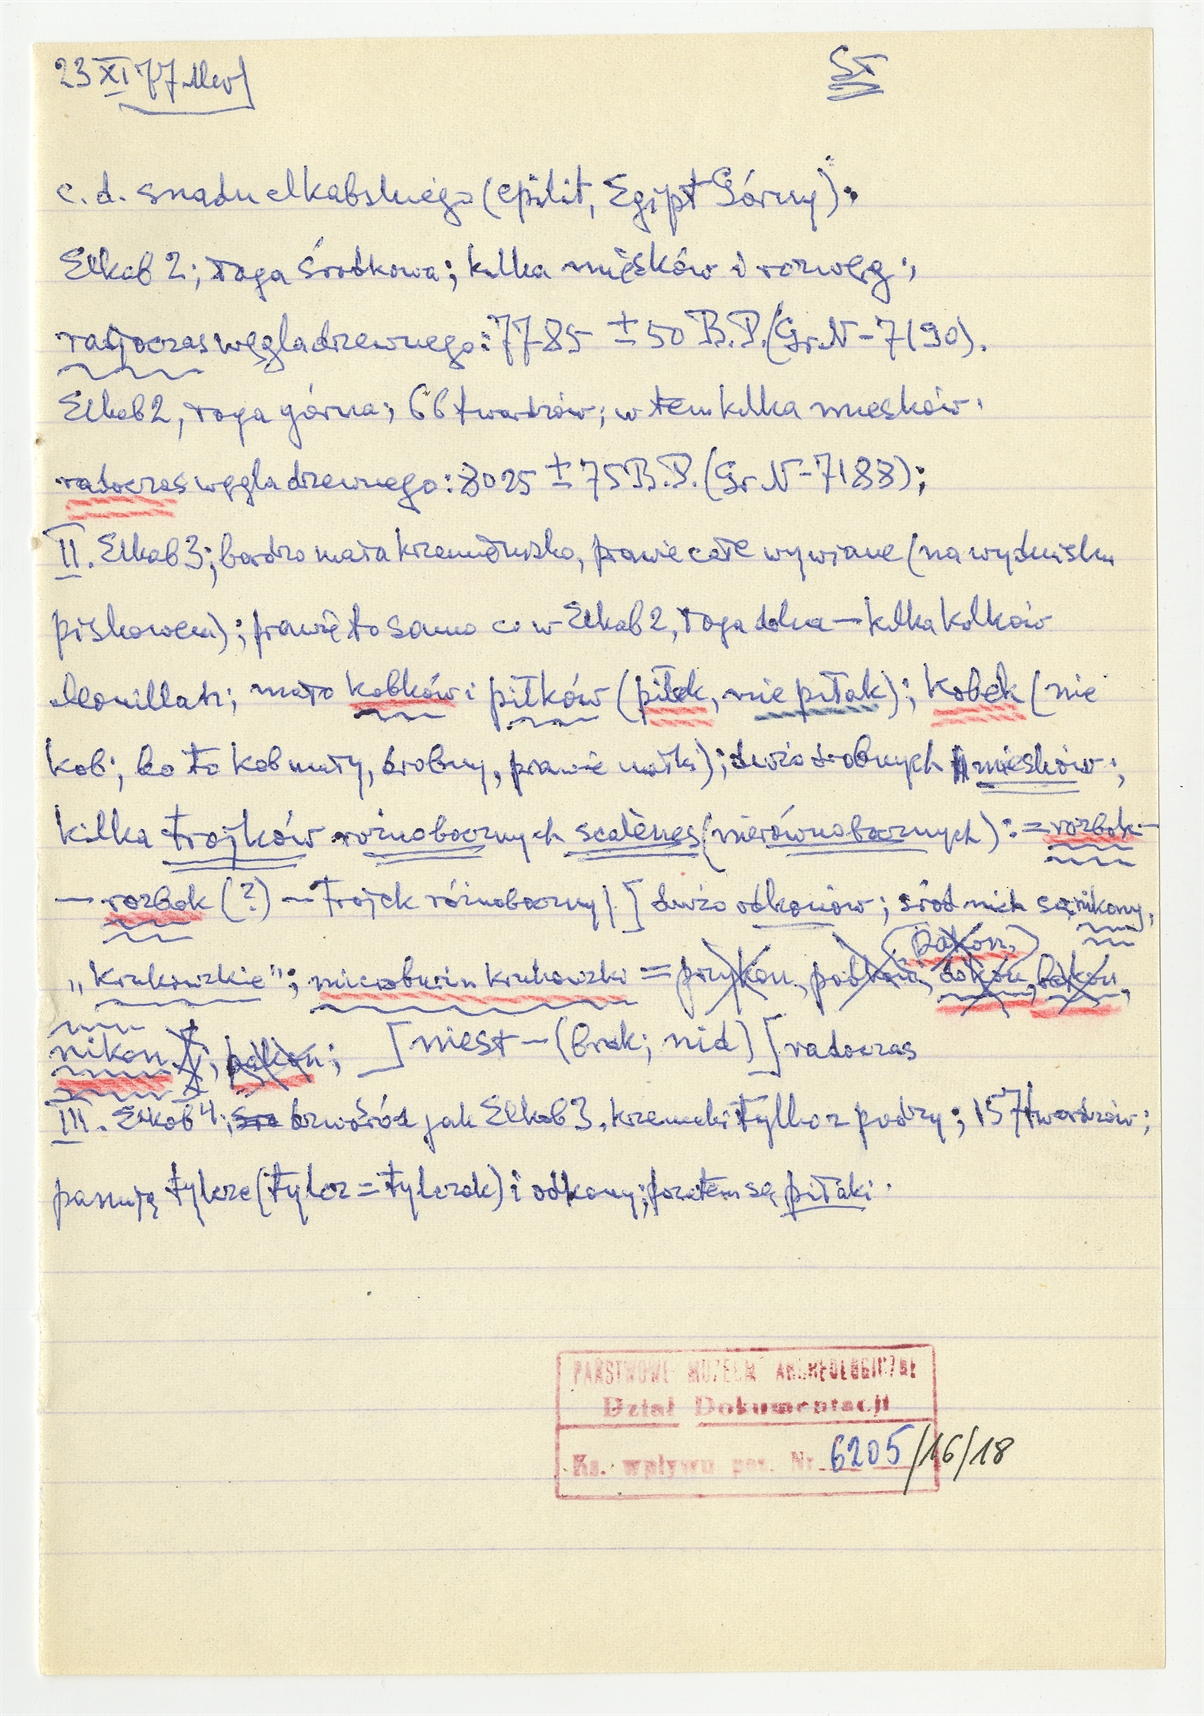 23 XI 77
ST
c.d. snadu elkabskiego (epilit, Egipt Górny):
Elkab 2; toga środkowa; kilka mięsków i rozwęg.,
radoczas węgla drzewnego: 7785 ± 50 B.P. (GrN-7190).
Elkab 2, toga górna; 66 twardzów; w tem kilka miesków.
radoczas węgla drzewnego: 8025 ± 75 B.P. (GrN-7188);
II. Elkab 3; bardzo mała krzemnisko, prawie całe wywiane (na wydmisku
piskowem); prawie to samo co w Elkab 2, toga dolna – kilka kolków
Mouillah; mało kobków i piłków (piłek, nie piłak); kobek (nie
kob; bo to kob mały, drobny, prawie małki); dużo drobnych miesków;
kilka trojków różnobocznych scalènes (nierównobocznych): = rozbok –
– rozbok (?) – trojek różnoboczny). ] dużo odkonów; śród nich są nikony,
(Dakon.)
„krukowzkie"; microburin krukowzki = przykón, podkón, dokón, bakón,
nikon, pakon; ] niest – (brak; nid) ] radoczas
III. Elkab 4; bzwośród jak Elkab 3, krzemcki tylko z podzy; 157 twardzów;
panują tylcze (tylcz = tylczak) i odkony; pozatem są piłaki.
PAŃSTWOWE MUZEUM ARCHEOLOGICZNE
Dział Dokumentacji
Ks. wpływu poz. Nr. 6205/16/18